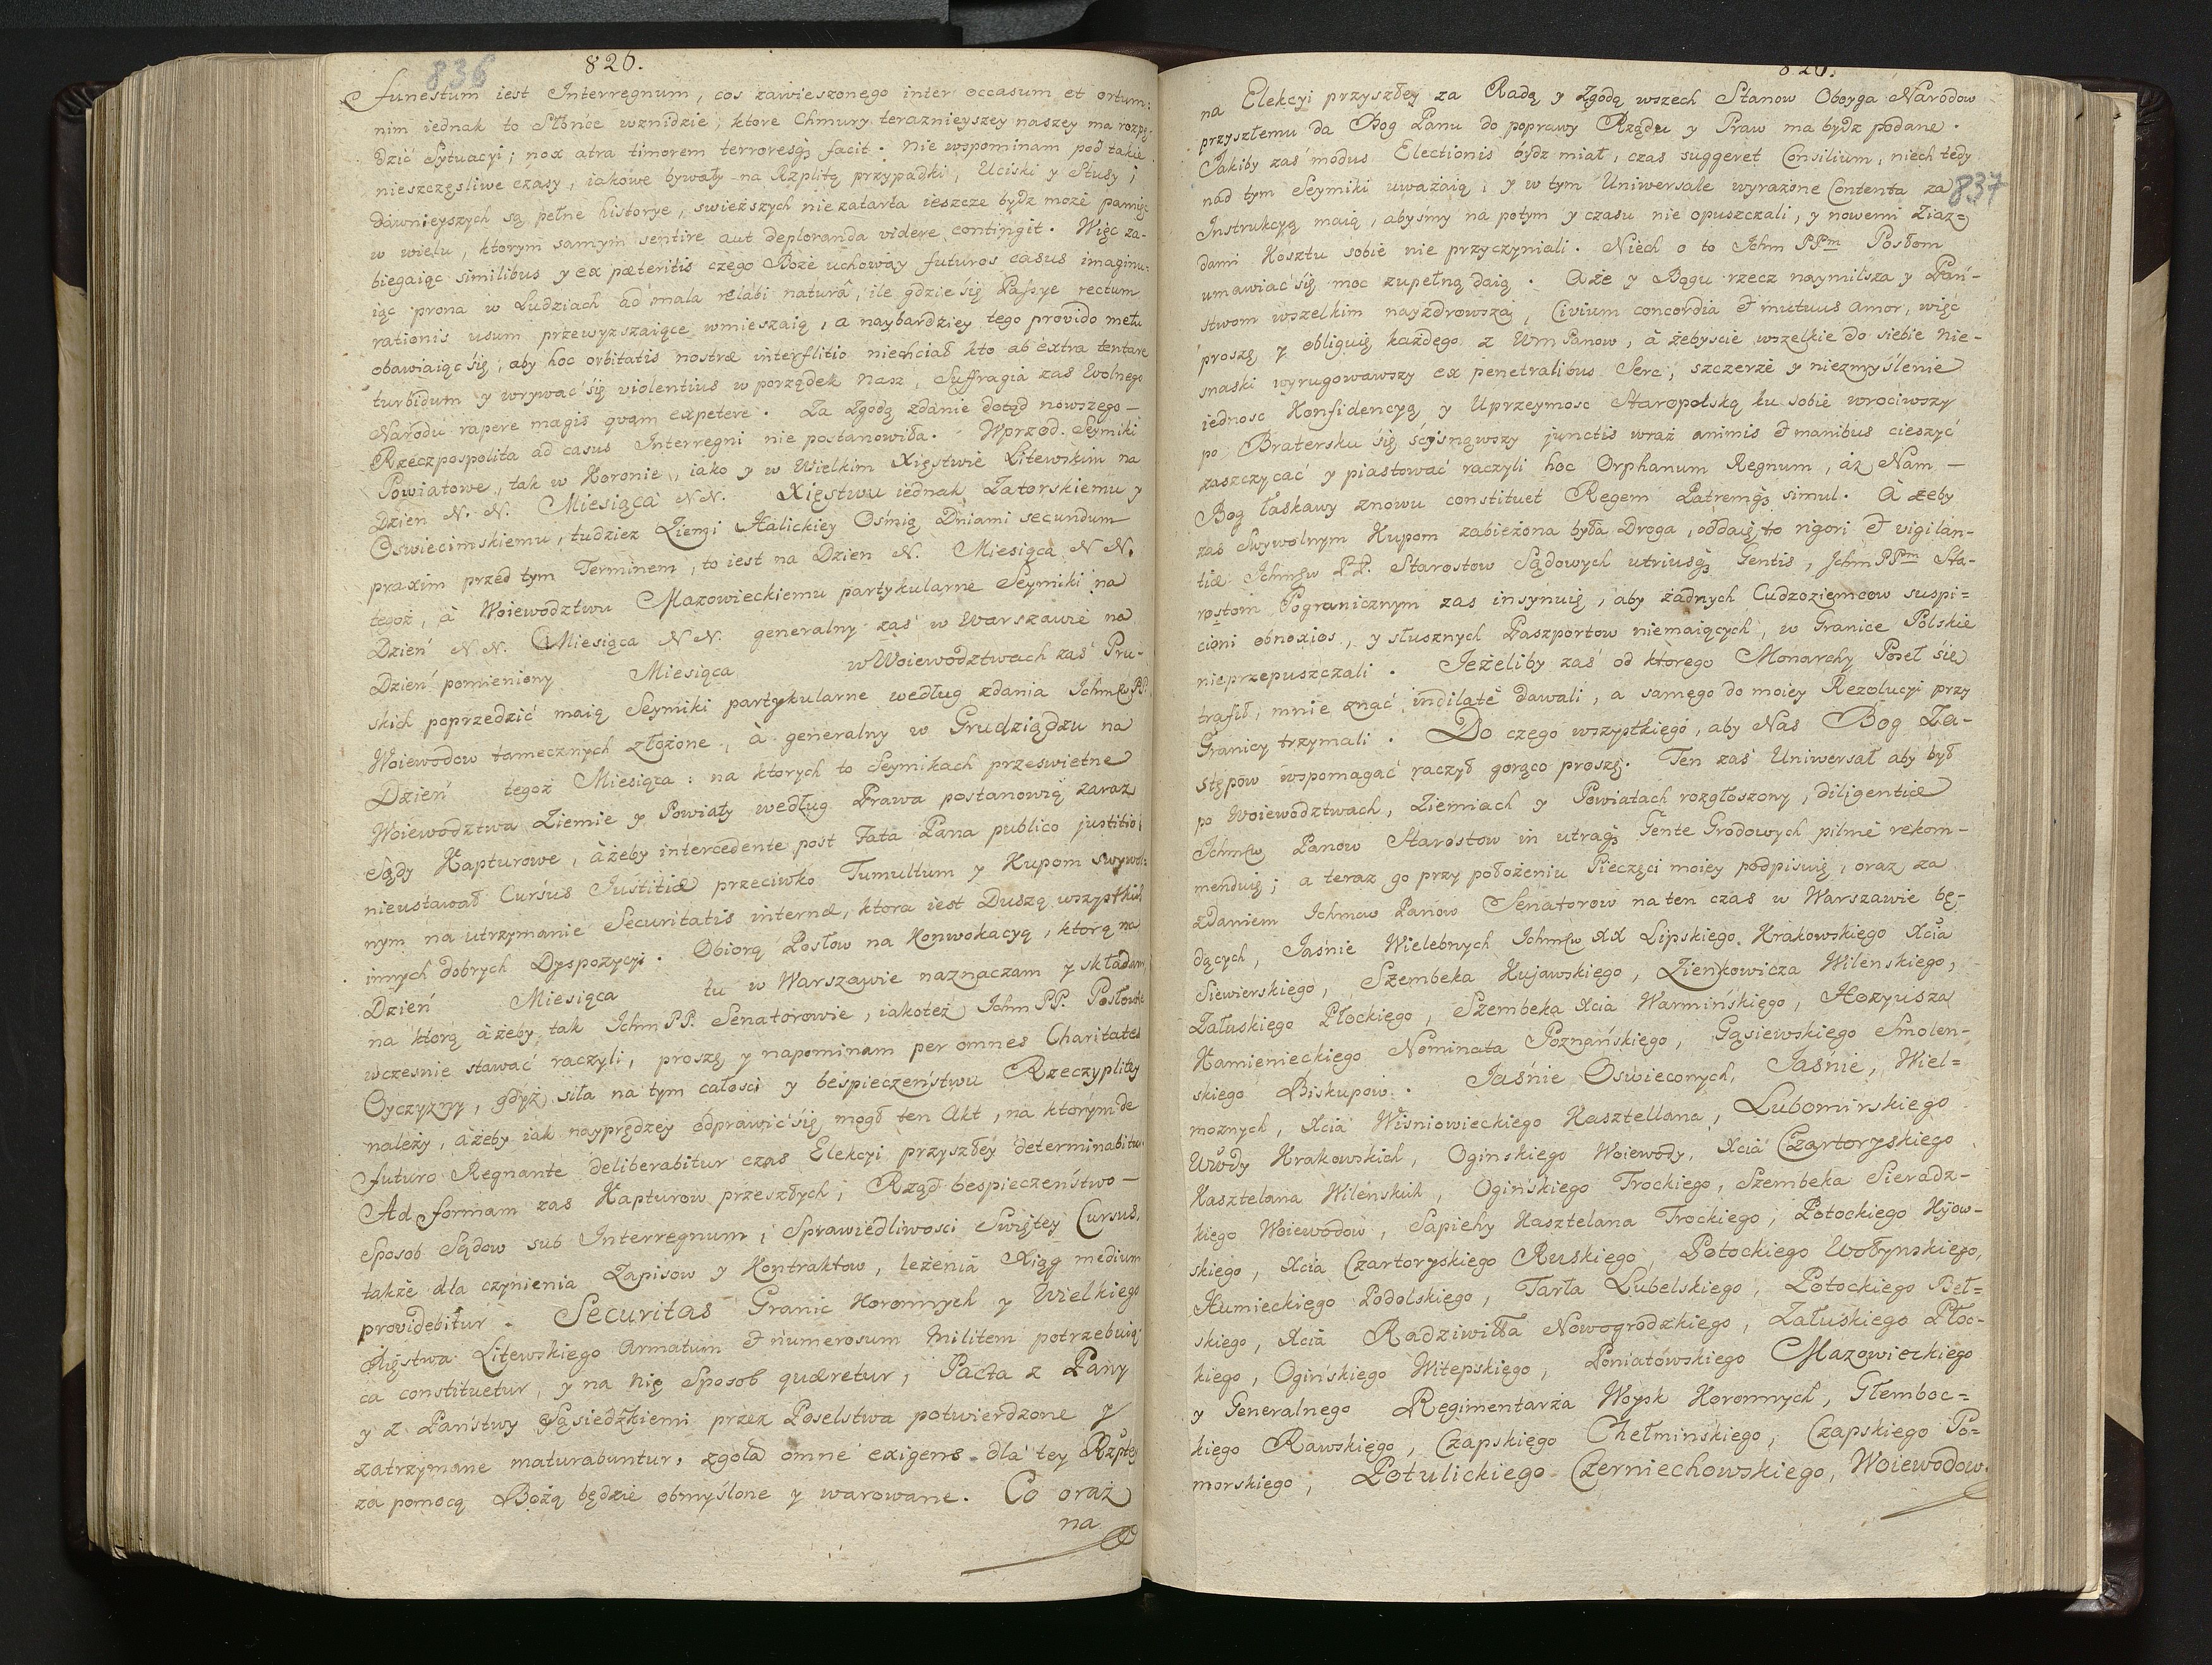 836
826.
funestum iest Interregnum, cos zawieszonego inter occasum et ortum:
nim iednak to Słońce wznidzie, ktore Chmury teraznieyszey naszey ma rozpę-
dzić Sytuacyi; nox atra timorem terroresq3 facit. Nie wspominam pod takie
nieszczęsliwe czasy, iakowe bywały na Rzplitą przypadki, Uciski y Stusy;
dawnieyszych są pełne historye, swieższych niezatarta ieszcze bydz może pamięc
w wielu, ktorym samym sentire aut deploranda videre contingit. Więc za-
biegaiąc similibus y ex præteritis czego Boże uchoway futuros casus imaginu-
iąc prona w Ludziach ad mala relabi naturâ, ile gdzie się Passye rectum
rationis usum przewyzszaiące wmieszaią, a naybardziey tego provido metu
obawiaiąc się, aby hoc orbitatis nostræ interstitio niechciał kto ab extra tentare
turbidum y wrywać się violentius w porządek Nasz, Suffragia zas Wolnego
Narodu rapere magis quam expetere. Za Zgodą zdanie dotąd nowszego
Rzeczpospolita ad casus Interregni nie postanowiła. Wprzod Seymiki
Powiatowe, tak w Koronie, iako y w Wielkim Xięstwie Litewskim na
Dzien N. N. Miesiąca N N. Xięstwu iednak Zatorskiemu y
Oswiecimskiemu, tudziez Ziemi Halickiey Ośmią Dniami secundum
praxim przed tym Terminem, to iest na Dzien N. Miesiąca N N.
tegoż, à Woiewodztwu Mazowieckiemu partykularne Seymiki na
Dzień N. N. Miesiąca N N. generalny zaś w Warszawie na
Dzień pomieniony Miesiąca w Woiewodztwach zaś Pru-
skich poprzedzić maią Seymiki partykularne według zdania Ichmćw PP.
Woiewodow tamecznych złożone, à generalny w Grudziądzu na
Dzień tegoż Miesiąca: na ktorych to Seymikach przeswietne
Woiewodztwa Ziemie y Powiaty według Prawa postanowią zaraz
Sądy Kapturowe, àżeby intercedente post Fata Pana publico justitio
nieustawał Cursus Justitiæ przeciwko Tumultum y Kupom swywol-
nym na utrzymanie Securitatis internæ, ktora iest Duszą wszystkich
innych dobrych Dyspozycyi. Obiorą Posłow na Konwokacyą, ktorą na
Dzień Miesiąca tu w Warszawie naznaczam y składam
na ktorą àżeby tak Ichm PP. Senatorowie, iakoteż Ichm PP. Posłowie
wczesnie stawać raczyli, proszę y napominam per omnes Charitates
Oyczyzny, gdyż siła na tym całosci y bespieczeństwu Rzeczyplitey
należy, àżeby iak nayprędzey odprawić się mogł ten Akt, na ktorym de
futuro Regnante deliberabitur czas Elekcyi przyszłéy determinabitur
Ad formam zas Kapturow przeszłych, Rząd bespieczeństwo
Sposob Sądow sub Interregnum, Sprawiedliwosci Swiętey Cursus,
także dla czynienia Zapisow y Kontraktow, leżenia Xiąg medium
providebitur. Securitas Granic Koronnych y Wielkiego
Xięstwa Litewskiego armatum & numerosum Militem potrzebuią-
ca constituetur, y na nię Sposob quæretur, Pacta z Pany
y z Państwy Sąsiedzkiemi przez Poselstwa potwierdzone y
zatrzymane maturabuntur, zgoła omne exigens dla tey Rzptey
za pomocą Bożą będzie obmyślone y warowane. Co oraz
na
826.
837
na Elekcyi przyszłey za Radą y Zgodą wszech Stanow Oboyga Narodow
przyszłemu da Bog Panu do poprawy Rządu y Praw ma bydz podane.
Jakiby zaś modus Electionis bydz miał, czas suggeret Consilium, niech tedy
nad tym Seymiki uważaią, y w tym Uniwersale wyrażone Contenta za
Instrukcyą maią, abyśmy na potym y czasu nie opuszczali, y nowemi Ziaz-
dami Kosztu sobie nie przyczyniali. Niech o to Ichm PPm Posłom
umawiać się moc zupełną daią. Aże y Bogu rzecz naymilsza y Pań-
stwom wszelkim nayzdrowszaj, Civium concordia & mutuus amor, więc
proszę y obliguię każdego z Wm Panow, à żebyscie wszelkie do siebie nie-
smaski wyrugowawszy ex penetralibus Serc, szczerże y niezmyślenie
iednosc Konfidencyą y Uprzeymosc Staropolską ku sobie wrociwszy
po Bratersku się ściysnąwszy junctis wraz animis & manibus cieszyć
zaszczycać y piastować raczyli hoc Orphanum Regnum, aż Nam
Bog łaskawy znowu constituet Regem Patremq3 simul. À żeby
zas Swywolnym Kupom zabieżona była Droga, oddaię to rigori & vigilan-
tiæ Ichmćw PP. Starostow Sądowych utriusq3 Gentis, Jchm PPm Sta-
rostom Pogranicznym zas insynuię, aby żadnych Cudzoziemcow suspi-
cioni obnoxios, y słusznych Paszportow niemaiących, w Granice Polskie
nieprzepuszczali. Jeżeliby zaś od ktorego Monarchy Poseł sie
trafił, mnie znać indilatè dawali, a samego do moiey Rezolucyi przy
Granicy trzymali. Do czego wszystkiego, aby Nas Bog Za-
stępow wspomagać raczył gorąco proszę. Ten zaś Uniwersał aby był
po Woiewodztwach, Ziemiach y Powiatach rozgłoszony, diligentiæ
Ichmćw Panow Starostow in utraq3 Gente Grodowych pilnie rekom-
menduię; a teraz go przy położeniu Pieczęci moiey podpisuię, oraz za
zdaniem Ichmcow Panow Senatorow na ten czas w Warszawie bę-
dących, Jaśnie Wielebnych Ichmćw XX Lipskiego Krakowskiego Xcia
Siewierskiego, Szembeka Kujawskiego, Zienkowicza Wilenskiego,
Załuskiego Płockiego, Szembeka Xcia Warmińskiego, Hozyusza
Kamienieckiego Nominata Poznańskiego, Gąsiewskiego Smolen-
skiego Biskupow. Jaśnie Oswieconych, Jaśnie, Wiel-
możnych, Xcia Wisniowieckiego Kasztellana, Lubomirskiego
Wwdy Krakowskich, Oginskiego Woiewody, Xcia Czartoryskiego
Kasztelana Wilenskich, Ogińskiego Trockiego, Szembeka Sieradz-
kiego Woiewodow, Sapiehy Kasztelana Trockiego, Potockiego Kijow-
skiego, Xcia Czartoryskiego Ruskiego, Potockiego Wołynskiego,
Humieckiego Podolskiego, Tarła Lubelskiego, Potockiego Beł-
skiego, Xcia Radziwiłła Nowogrodzkiego, Załuskiego Płoc-
kiego, Ogińskiego Witepskiego, Poniatowskiego Mazowieckiego
y Generalnego Regimentarza Woysk Koronnych, Głemboc-
kiego Rawskiego, Czapskiego Chełmińskiego, Czapskiego Po-
morskiego, Potulickiego Czerniechowskiego, Woiewodow.